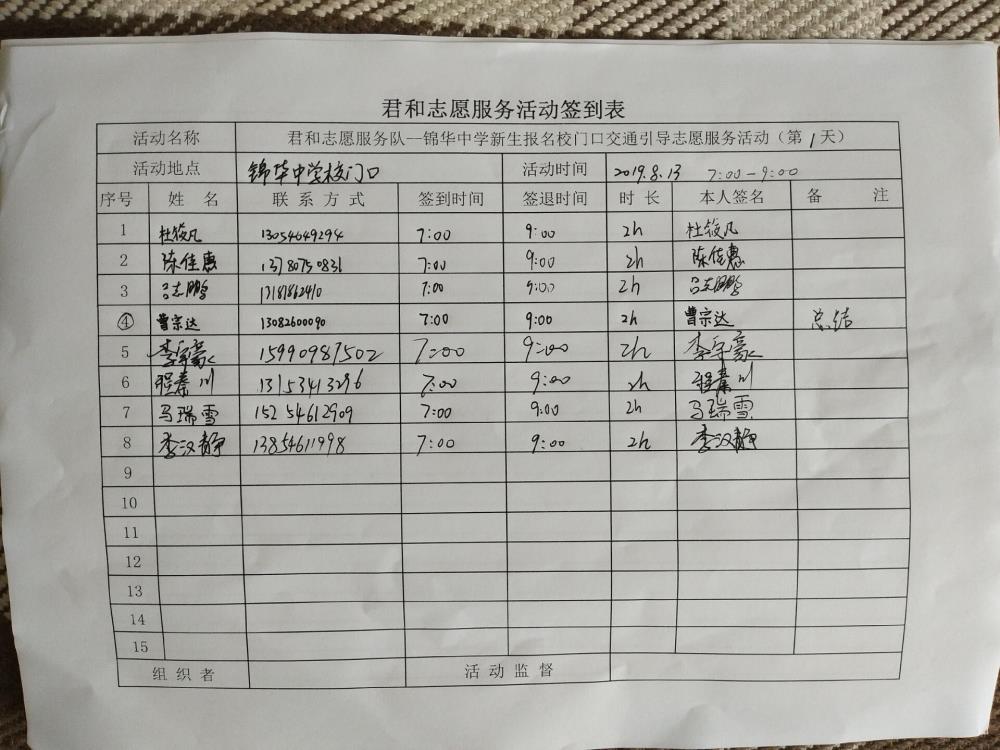 君和志愿服务活动签到表
活动名称 君和志愿服务队—锦华中学新生报名校门口交通引导志愿服务活动（第1天）
活动地点 锦华中学校门口 活动时间 2019.8.13 7:00-9:00
序号 姓名 联系方式 签到时间 签退时间 时长 本人签名 备注
1 杜筱凡 13054649294 7:00 9:00 2h 杜筱凡
2 陈佳惠 13780750831 7:00 9:00 2h 陈佳惠
3 吕志鹏 7:00 9:00 2h 吕志鹏
④ 曹宗达 13082600090 7:00 9:00 2h 曹宗达 总结
5 李宇豪 15990987502 7:00 9:00 2h 李宇豪
6 程秦川 13153413296 7:00 9:00 2h 程秦川
7 马瑞雪 15254612909 7:00 9:00 2h 马瑞雪
8 李汉静 13854611998 7:00 9:00 2h 李汉静
9
10
11
12
13
14
15
组织者 活动监督